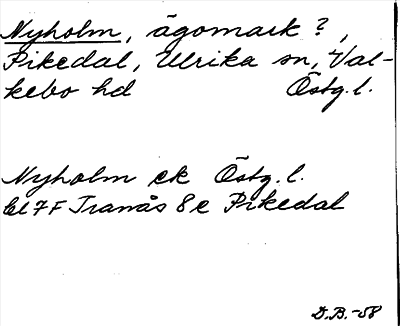 Nyholm, ägomark?,
Pikedal, Ulrika sn, Val-
kebo hd Östg. l.
Nyholm ek Östg. l.
bl 7F Tranås 8e Pikedal
D.B.-58